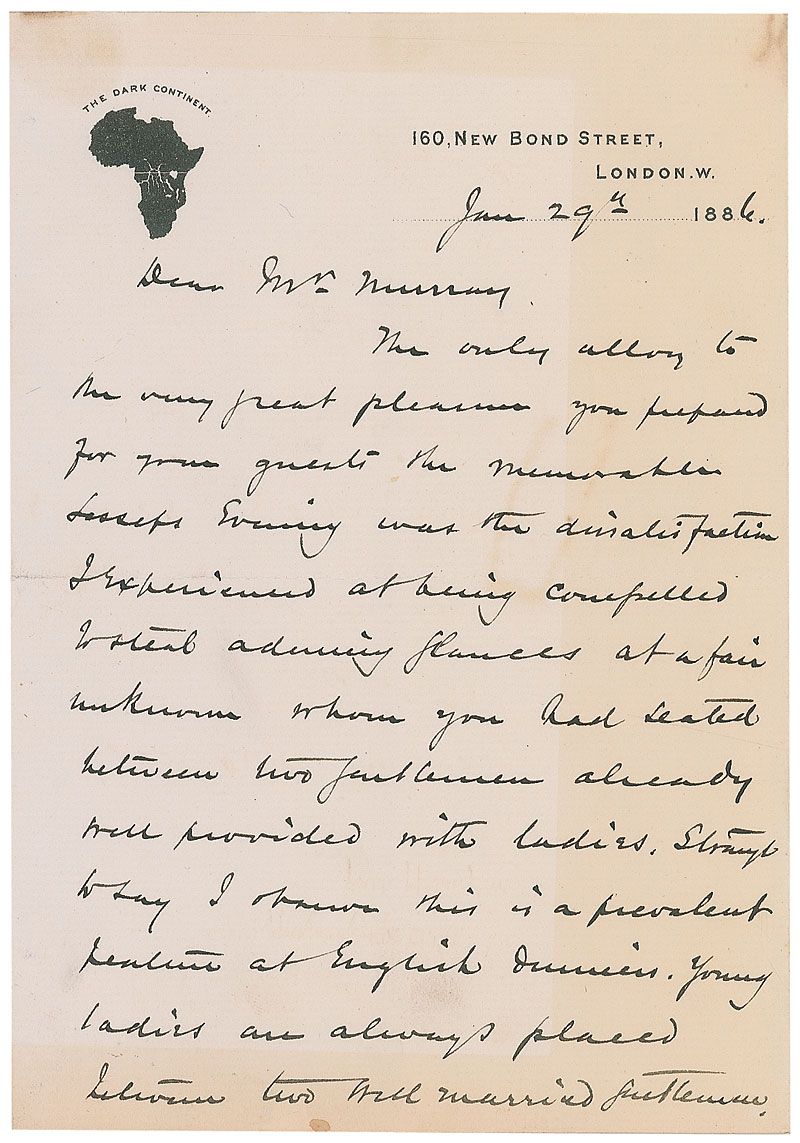 THE DARK CONTINENT.
160, NEW BOND STREET,
LONDON.W.
Jan 29th 1886.
Dear Mr Murray.
The only alloy to
the very great pleasure you prepared
for your guests the memorable
Lesseps Evening was the dissatisfaction
I experienced at being compelled
to steal admiring glances at a fair
unknown whom you had seated
between two gentlemen already
well provided with ladies. Strange
to say I observe this is a prevalent
feature at English dinners. Young
ladies are always placed
between two well married gentlemen,